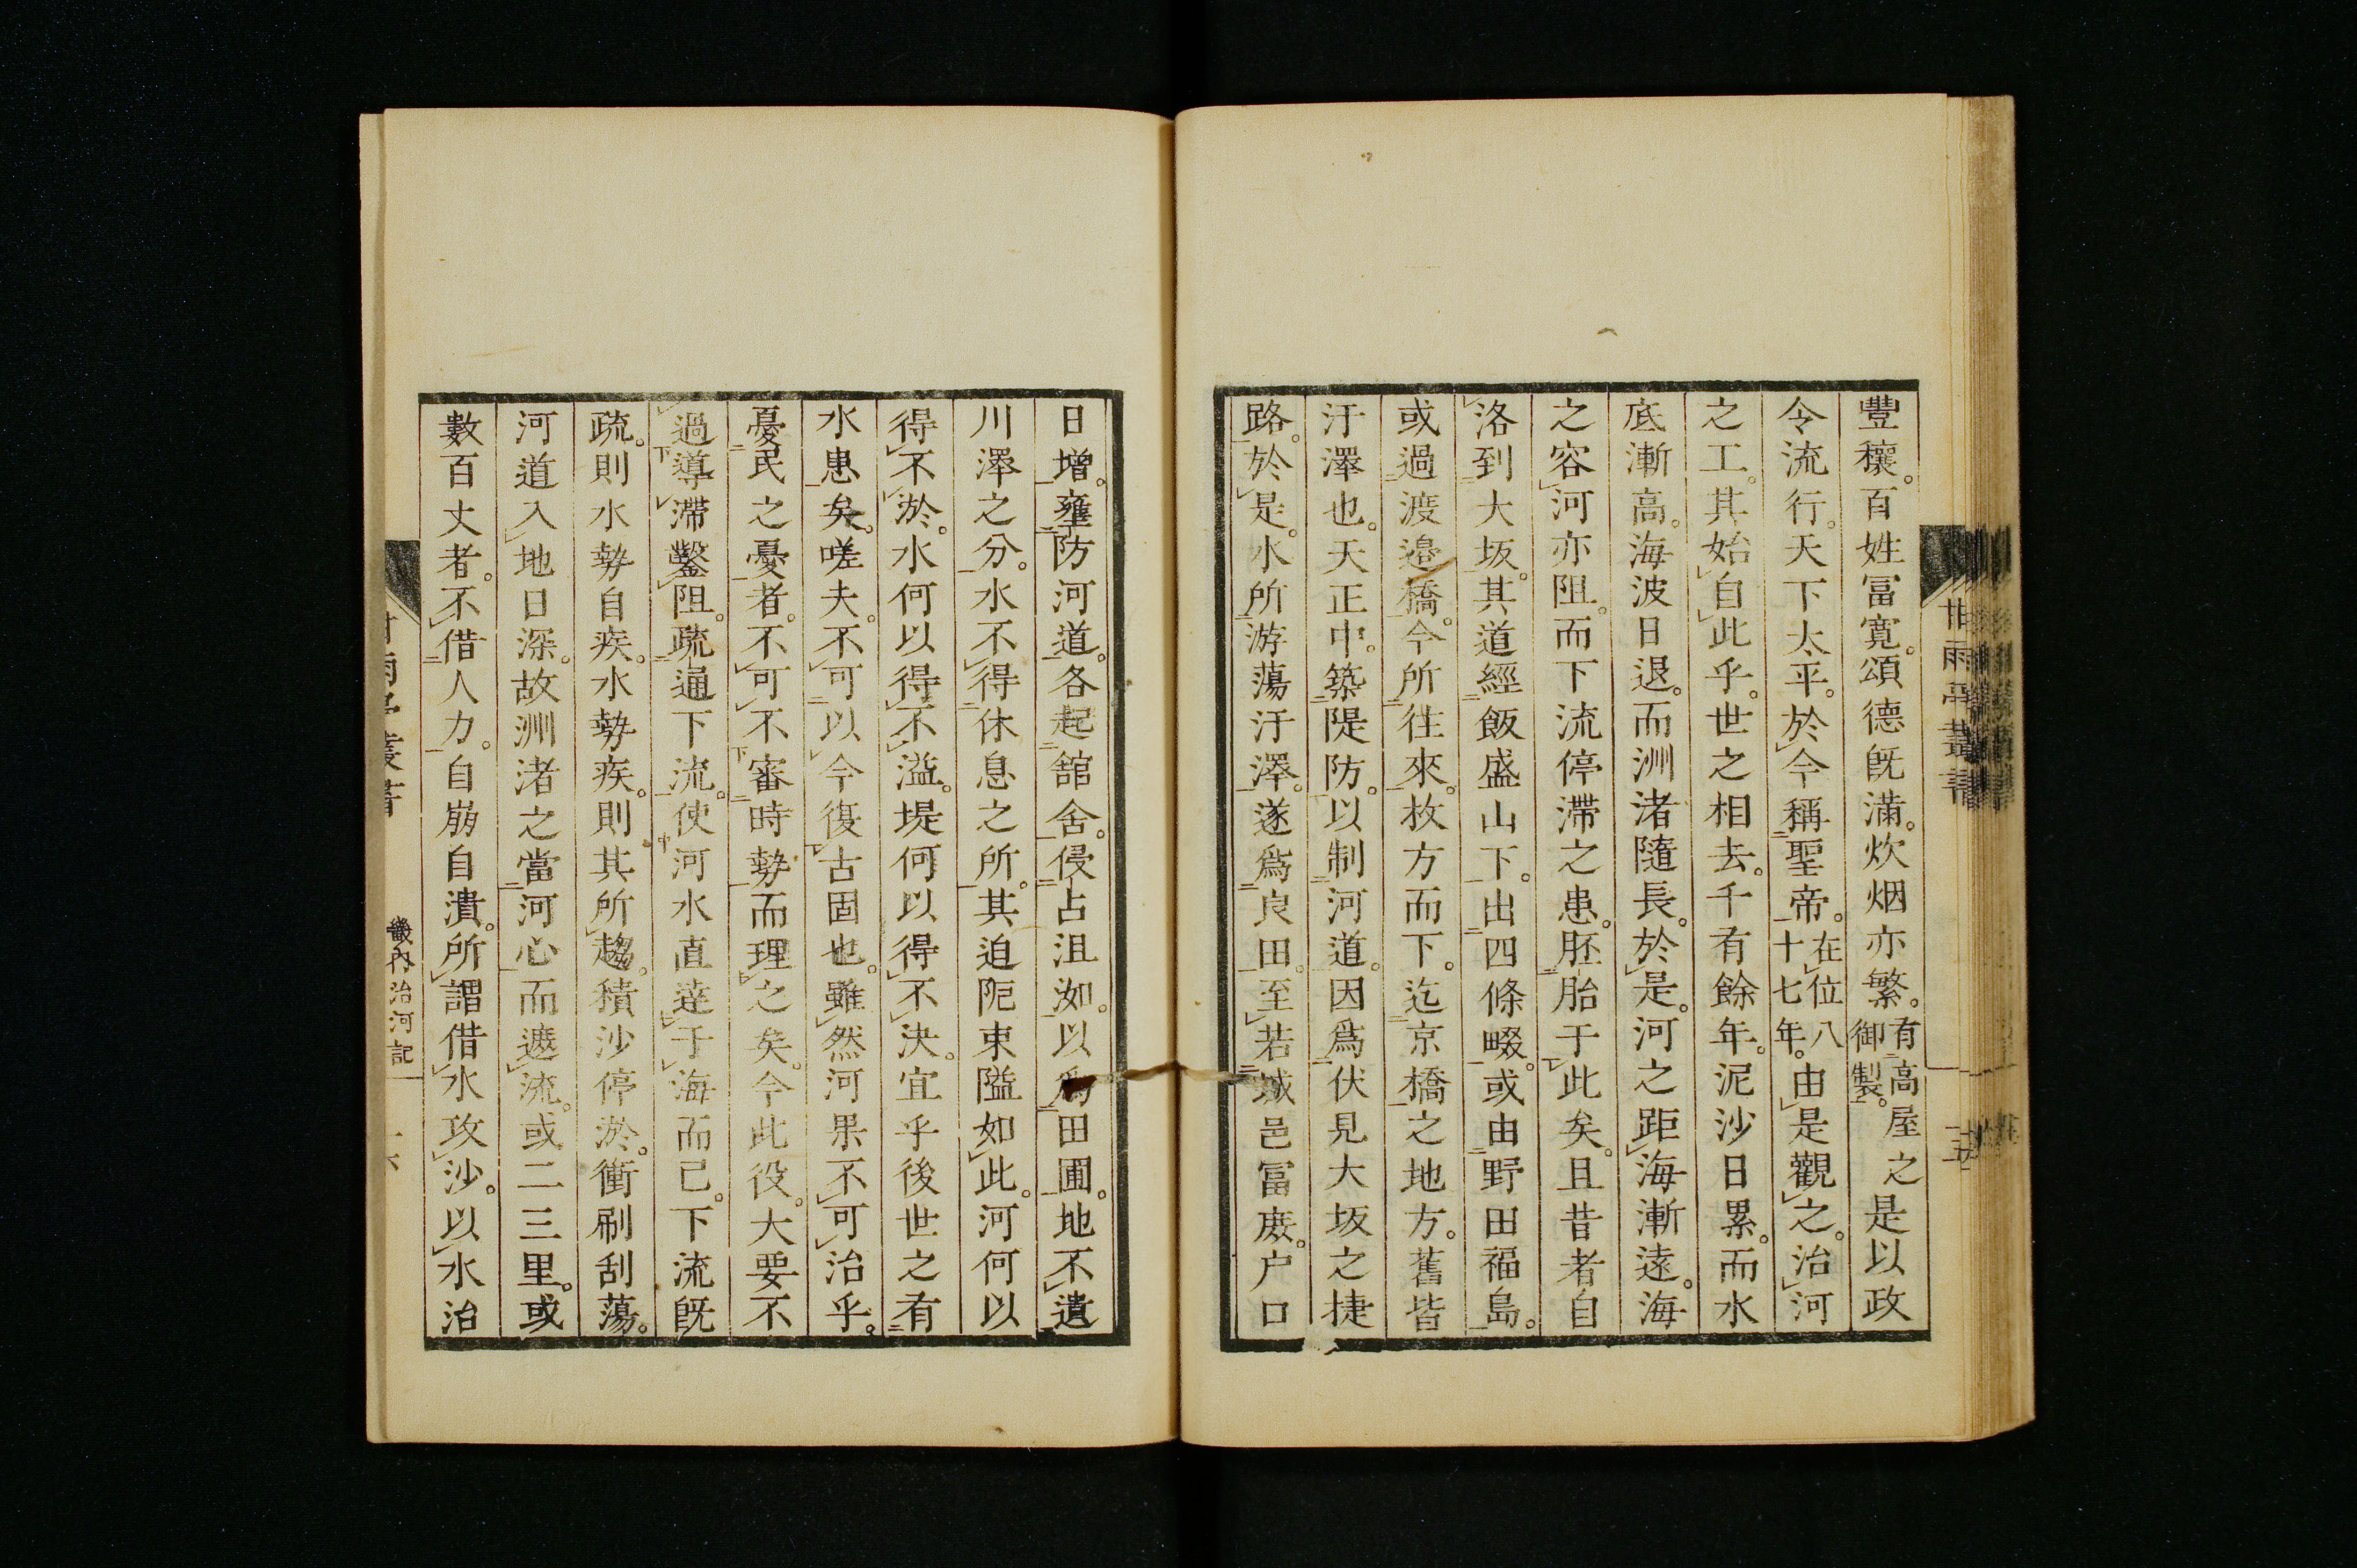 豐穰。百姓冨寛。頌德旣滿。炊烟亦繁。有高屋之御製。是以政
令流行。天下太平。於今稱聖帝。在位八十七年。由是觀之。治河
之工。其始自此乎。世之相去。千有餘年。泥沙日累。而水
底漸高。海波日退。而洲渚隨長。於是。河之距海漸遠。海
之容河亦阻。而下流停滯之患。胚胎于此矣。且昔者自
洛到大坂。其道經飯盛山下。出四條畷。或由野田福島。
或過渡邉橋。今所往來。枚方而下。迄京橋之地方。舊皆
汙澤也。天正中。築隄防。以制河道。因爲伏見大坂之捷
路。於是。水所游蕩汙澤。遂爲良田。至若城邑冨庶。户口
甘雨亭叢書
十五
日増。壅防河道。各起舘舍。侵占沮洳。以爲田圃。地不遺
川澤之分。水不得休息之所。其迫阨東隘如此。河何以
得不淤。水何以得不溢。堤何以得不決。宜乎後世之有
水患矣。嗟夫。不可以今復古固也。雖然河果不可治乎。
憂民之憂者。不可不審時勢而理之矣。今此役。大要不
過導滯鑿阻。疏通下流。使河水直達于海而已。下流旣
疏。則水勢自疾。水勢疾。則其所趨。積沙停淤。衝刷刮蕩。
河道入地日深。故洲渚之當河心而遮流。或二三里。或
數百丈者。不借人力。自崩自潰。所謂借水攻沙。以水治
畿內治河記